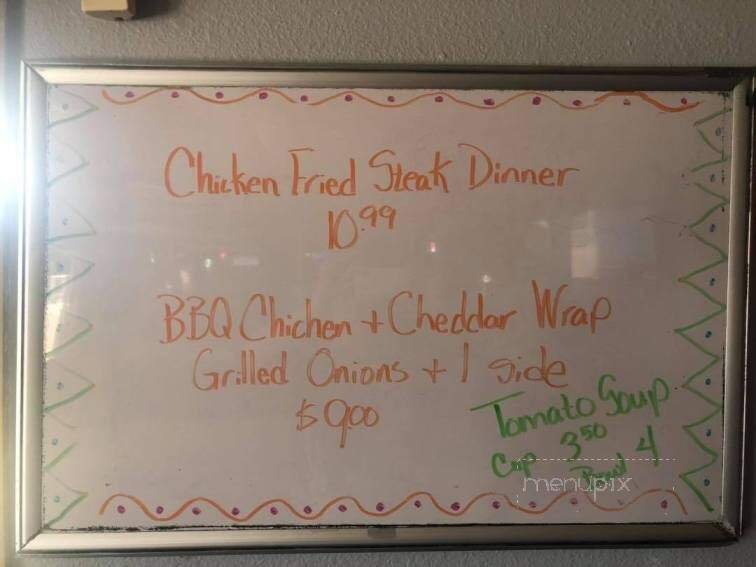 Chicken Fried Steak Dinner
10.99
BBQ Chichen + Cheddar Wrap
Grilled Onions + 1 side
$9.00
Tomato Soup
Cup 3.50
Bowl 4
menupix